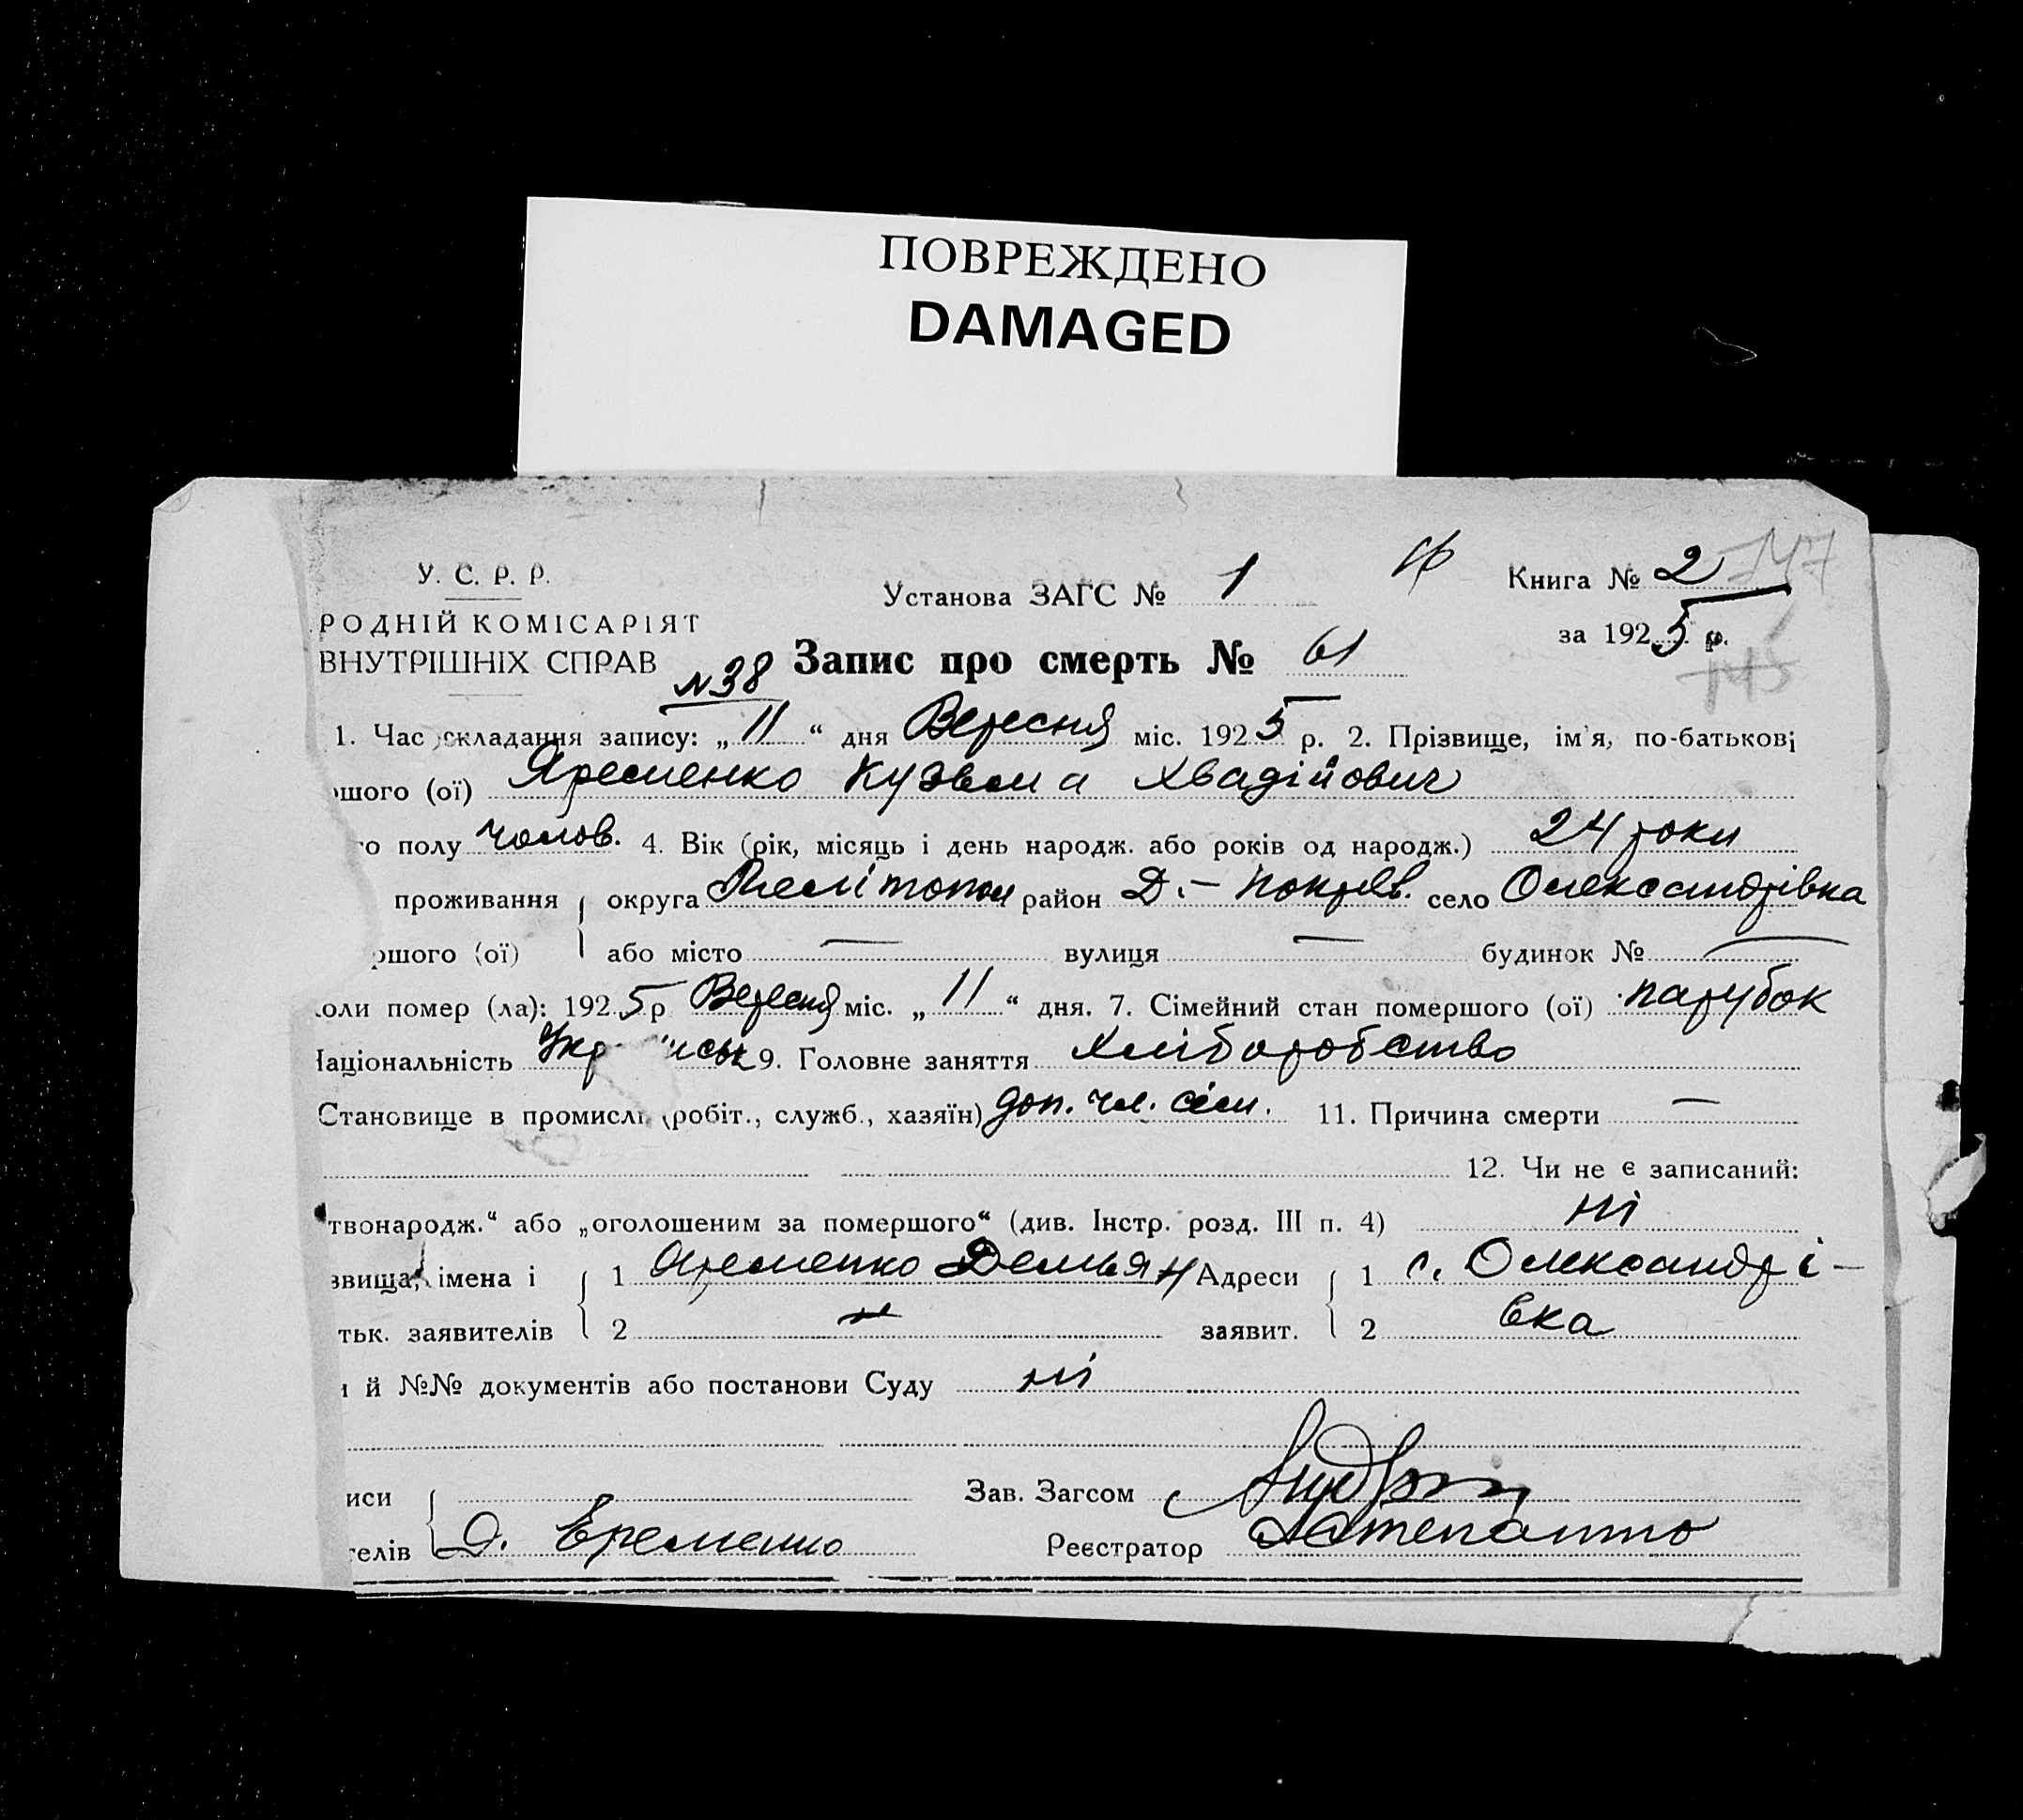 ПОВРЕЖДЕНО
DAMAGED
У. С. Р. Р.
РОДНІЙ КОМІСАРІЯТ
ВНУТРІШНІХ СПРАВ
Установа ЗАГС № 1
Книга № 2 147
за 1925 р.
145
Запис про смерть № 61
№38
1. Час складання запису: „11“ дня Вересня міс. 1925 р. 2. Прізвище, ім'я, по-батькові
ршого (ої) Яременко Кузьма Хвадійович
го полу чолов. 4. Вік (рік, місяць і день народж. або років од народж.) 24 роки
проживання { округа Мелітопол район Д.-Покров. село Олександрівка
ршого (ої) або місто — вулиця — будинок № —
коли помер (ла): 1925 р Вересня міс. „11“ дня. 7. Сімейний стан помершого (ої) парубок
Національність Укр їнськ 9. Головне заняття Хліборобство
Становище в промислі (робіт., служб., хазяїн) доп. чл. сім. 11. Причина смерти —
12. Чи не є записаний:
твонародж.“ або „оголошеним за помершого“ (див. Інстр. розд. III п. 4) ні
звища, імена і { 1 Яременко Демьян Адреси { 1 с. Олександрі-
тьк. заявителів 2 заявит. 2 вка
и й №№ документів або постанови Суду ні
иси { Зав. Загсом
телів Д. Еременко Реєстратор